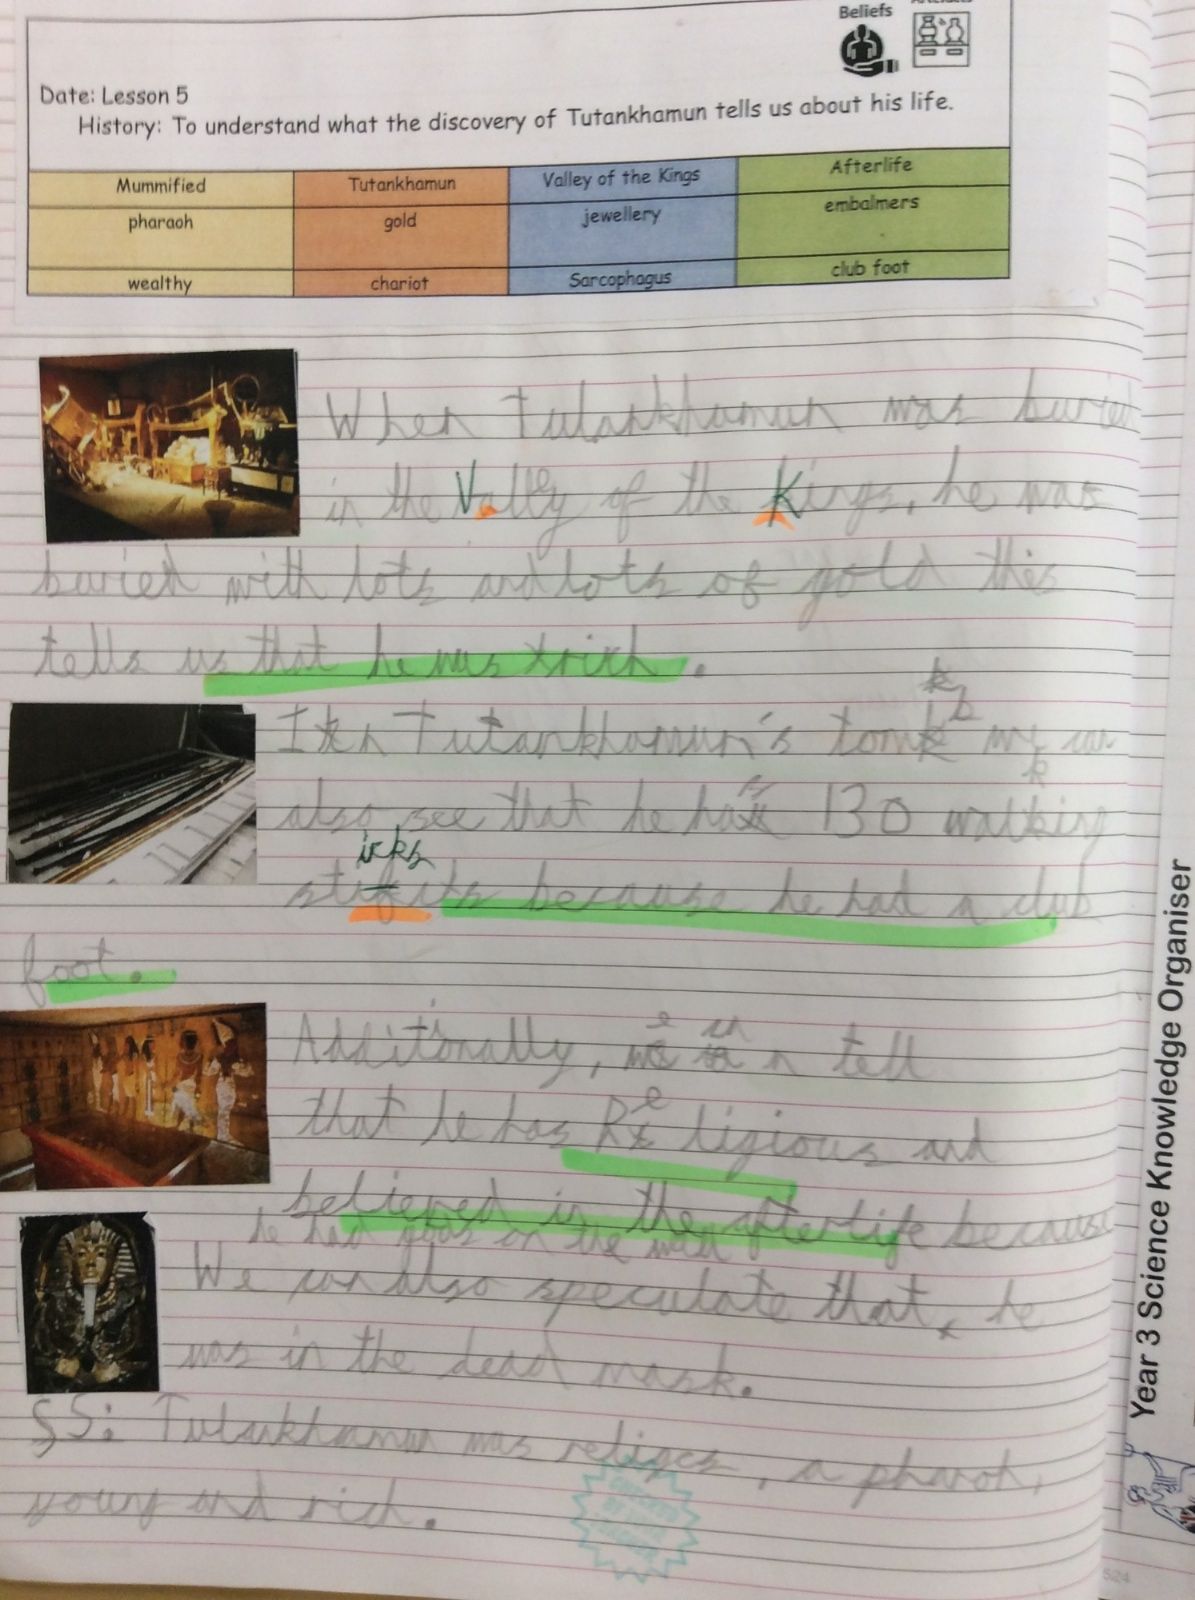 Beliefs
Date: Lesson 5
History: To understand what the discovery of Tutankhamun tells us about his life.
Mummified Tutankhamun Valley of the Kings Afterlife
pharaoh gold jewellery embalmers
wealthy chariot Sarcophagus club foot
When Tutankhamun was buried
in the Valley of the Kings, he was
buried with lots and lots of gold this
tells us that he was rich.
In Tutankhamun's tomb we can
also see that he has 130 walking
sticks because he had a club
foot.
Additionally, we can tell
that he has Religious and
believed in the afterlife because
he had gods on the wall
We can also speculate that, he
was in the dead mask.
SS: Tutankhamun was religes, a pharoh,
young and rich.
Year 3 Science Knowledge Organiser